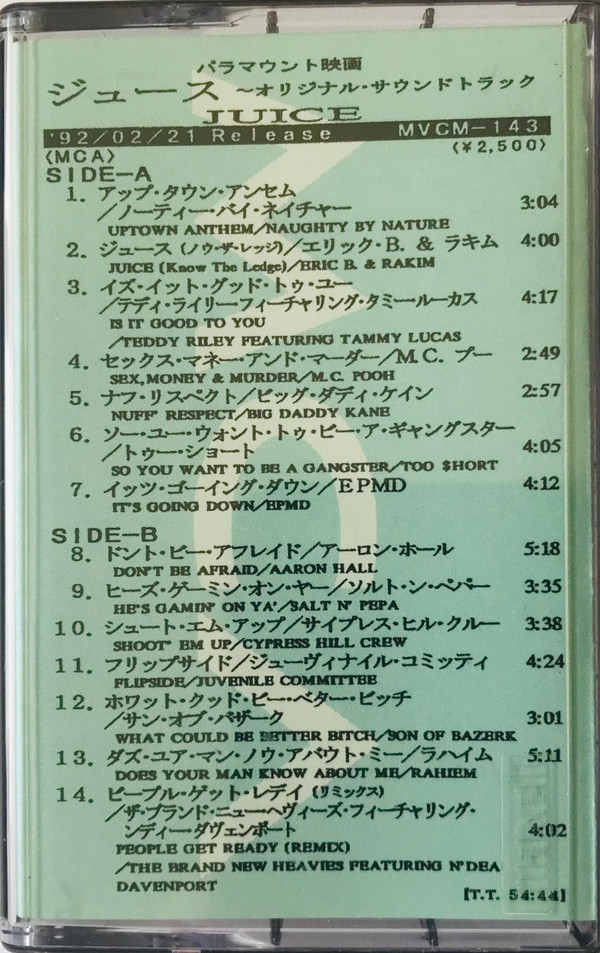 パラマウント映画
ジュース ～オリジナル・サウンドトラック
JUICE
'92/02/21 Release MVCM-143
〈MCA〉 (¥2,500)
SIDE-A
1. アップ・タウン・アンセム
/ノーティー・バイ・ネイチャー 3:04
UPTOWN ANTHEM/NAUGHTY BY NATURE
2. ジュース (ノウ・ザ・レッジ)/エリック・B. & ラキム 4:00
JUICE (Know The Ledge)/ERIC B. & RAKIM
3. イズ・イット・グッド・トゥ・ユー
/テディ・ライリー・フィーチャリング・タミー・ルーカス 4:17
IS IT GOOD TO YOU
/TEDDY RILEY FEATURING TAMMY LUCAS
4. セックス・マネー・アンド・マーダー/M.C. プー 2:49
SEX, MONEY & MURDER/M.C. POOH
5. ナフ・リスペクト/ビッグ・ダディ・ケイン 2:57
NUFF' RESPECT/BIG DADDY KANE
6. ソー・ユー・ウォント・トゥ・ビー・ア・ギャングスター
/トゥー・ショート 4:05
SO YOU WANT TO BE A GANGSTER/TOO $HORT
7. イッツ・ゴーイング・ダウン/EPMD 4:12
IT'S GOING DOWN/EPMD
SIDE-B
8. ドント・ビー・アフレイド/アーロン・ホール 5:18
DON'T BE AFRAID/AARON HALL
9. ヒーズ・ゲーミン・オン・ヤー/ソルト・ン・ペパー 3:35
HE'S GAMIN' ON YA'/SALT N' PEPA
10. シュート・エム・アップ/サイプレス・ヒル・クルー 3:38
SHOOT' EM UP/CYPRESS HILL CREW
11. フリップサイド/ジューヴィナイル・コミッティ 4:24
FLIPSIDE/JUVENILE COMMITTEE
12. ホワット・クッド・ビー・ベター・ビッチ
/サン・オブ・バザーク 3:01
WHAT COULD BE BETTER BITCH/SON OF BAZERK
13. ダズ・ユア・マン・ノウ・アバウト・ミー/ラハイム 5:11
DOES YOUR MAN KNOW ABOUT ME/RAHIEM
14. ピープル・ゲット・レディ (リミックス)
/ザ・ブランド・ニュー・ヘヴィーズ・フィーチャリング・
ンディー・ダヴェンポート 4:02
PEOPLE GET READY (REMIX)
/THE BRAND NEW HEAVIES FEATURING N'DEA
DAVENPORT
[T.T. 54:44]